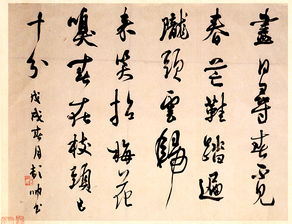 盡日尋春不見
春芒鞋踏遍
隴頭雲歸
来笑拈梅花
嗅春在枝頭已
十分
戊戌春月